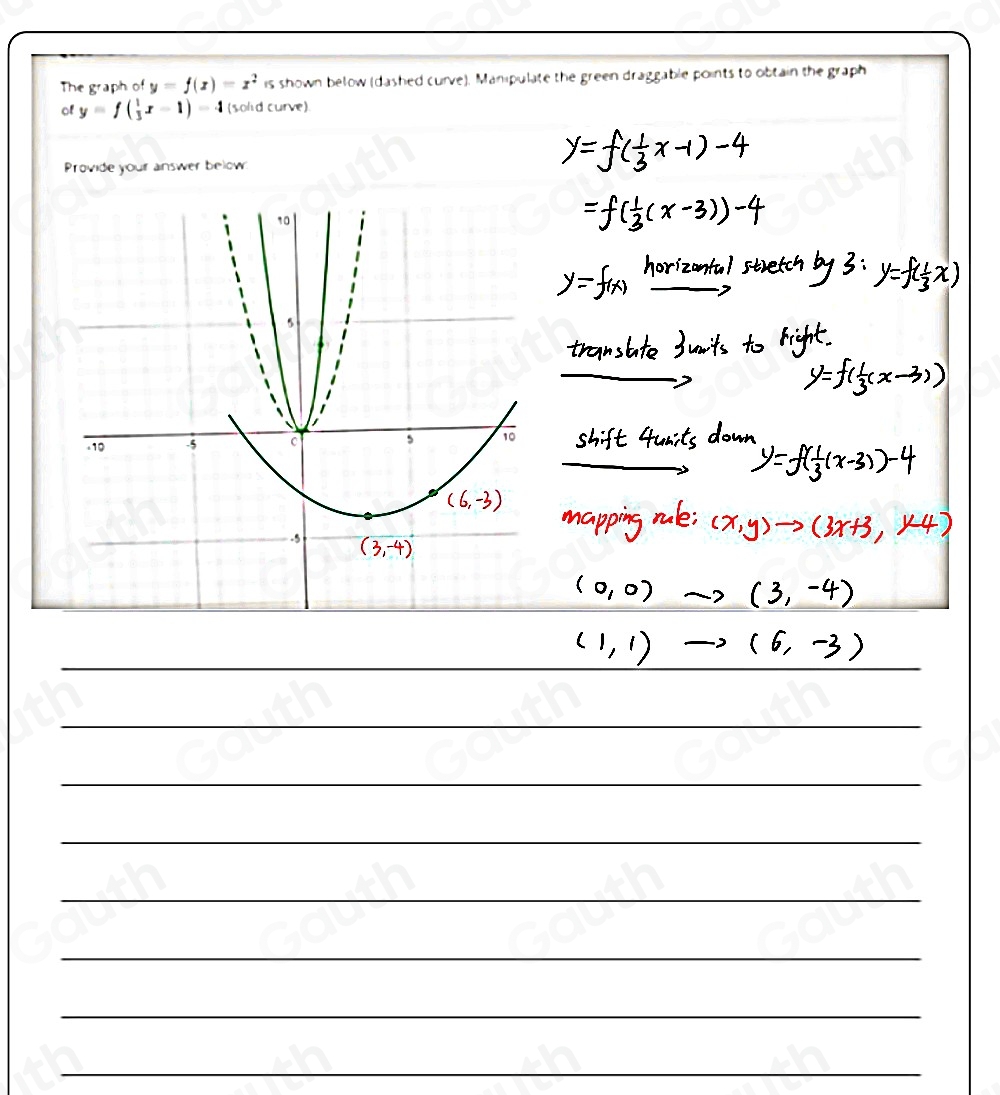 The graph of y = f(x) = x² is shown below (dashed curve). Manipulate the green draggable points to obtain the graph
of y = f(1/3 x - 1) - 4 (solid curve)
Provide your answer below
y=f(1/3 x-1)-4
=f(1/3(x-3))-4
y=f(x) horizontal stretch by 3: y=f(1/3 x)
translate 3 units to right.
y=f(1/3(x-3))
shift 4 units down y=f(1/3(x-3))-4
mapping rule: (x,y)→(3x+3, y-4)
(0,0) → (3, -4)
(1,1) → (6, -3)
10
5
-10
-5
0
5
10
-5
(6,-3)
(3,-4)
Gauth